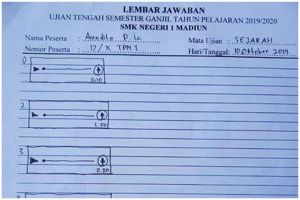 LEMBAR JAWABAN
UJIAN TENGAH SEMESTER GANJIL TAHUN PELAJARAN 2019/2020
SMK NEGERI 1 MADIUN
Nama Peserta :
Mata Ujian : SEJARAH
Nomor Peserta : 17/X TPM 1
Hari/Tanggal: 10 Oktober 2019
0.10
2
1.00
3
0.30